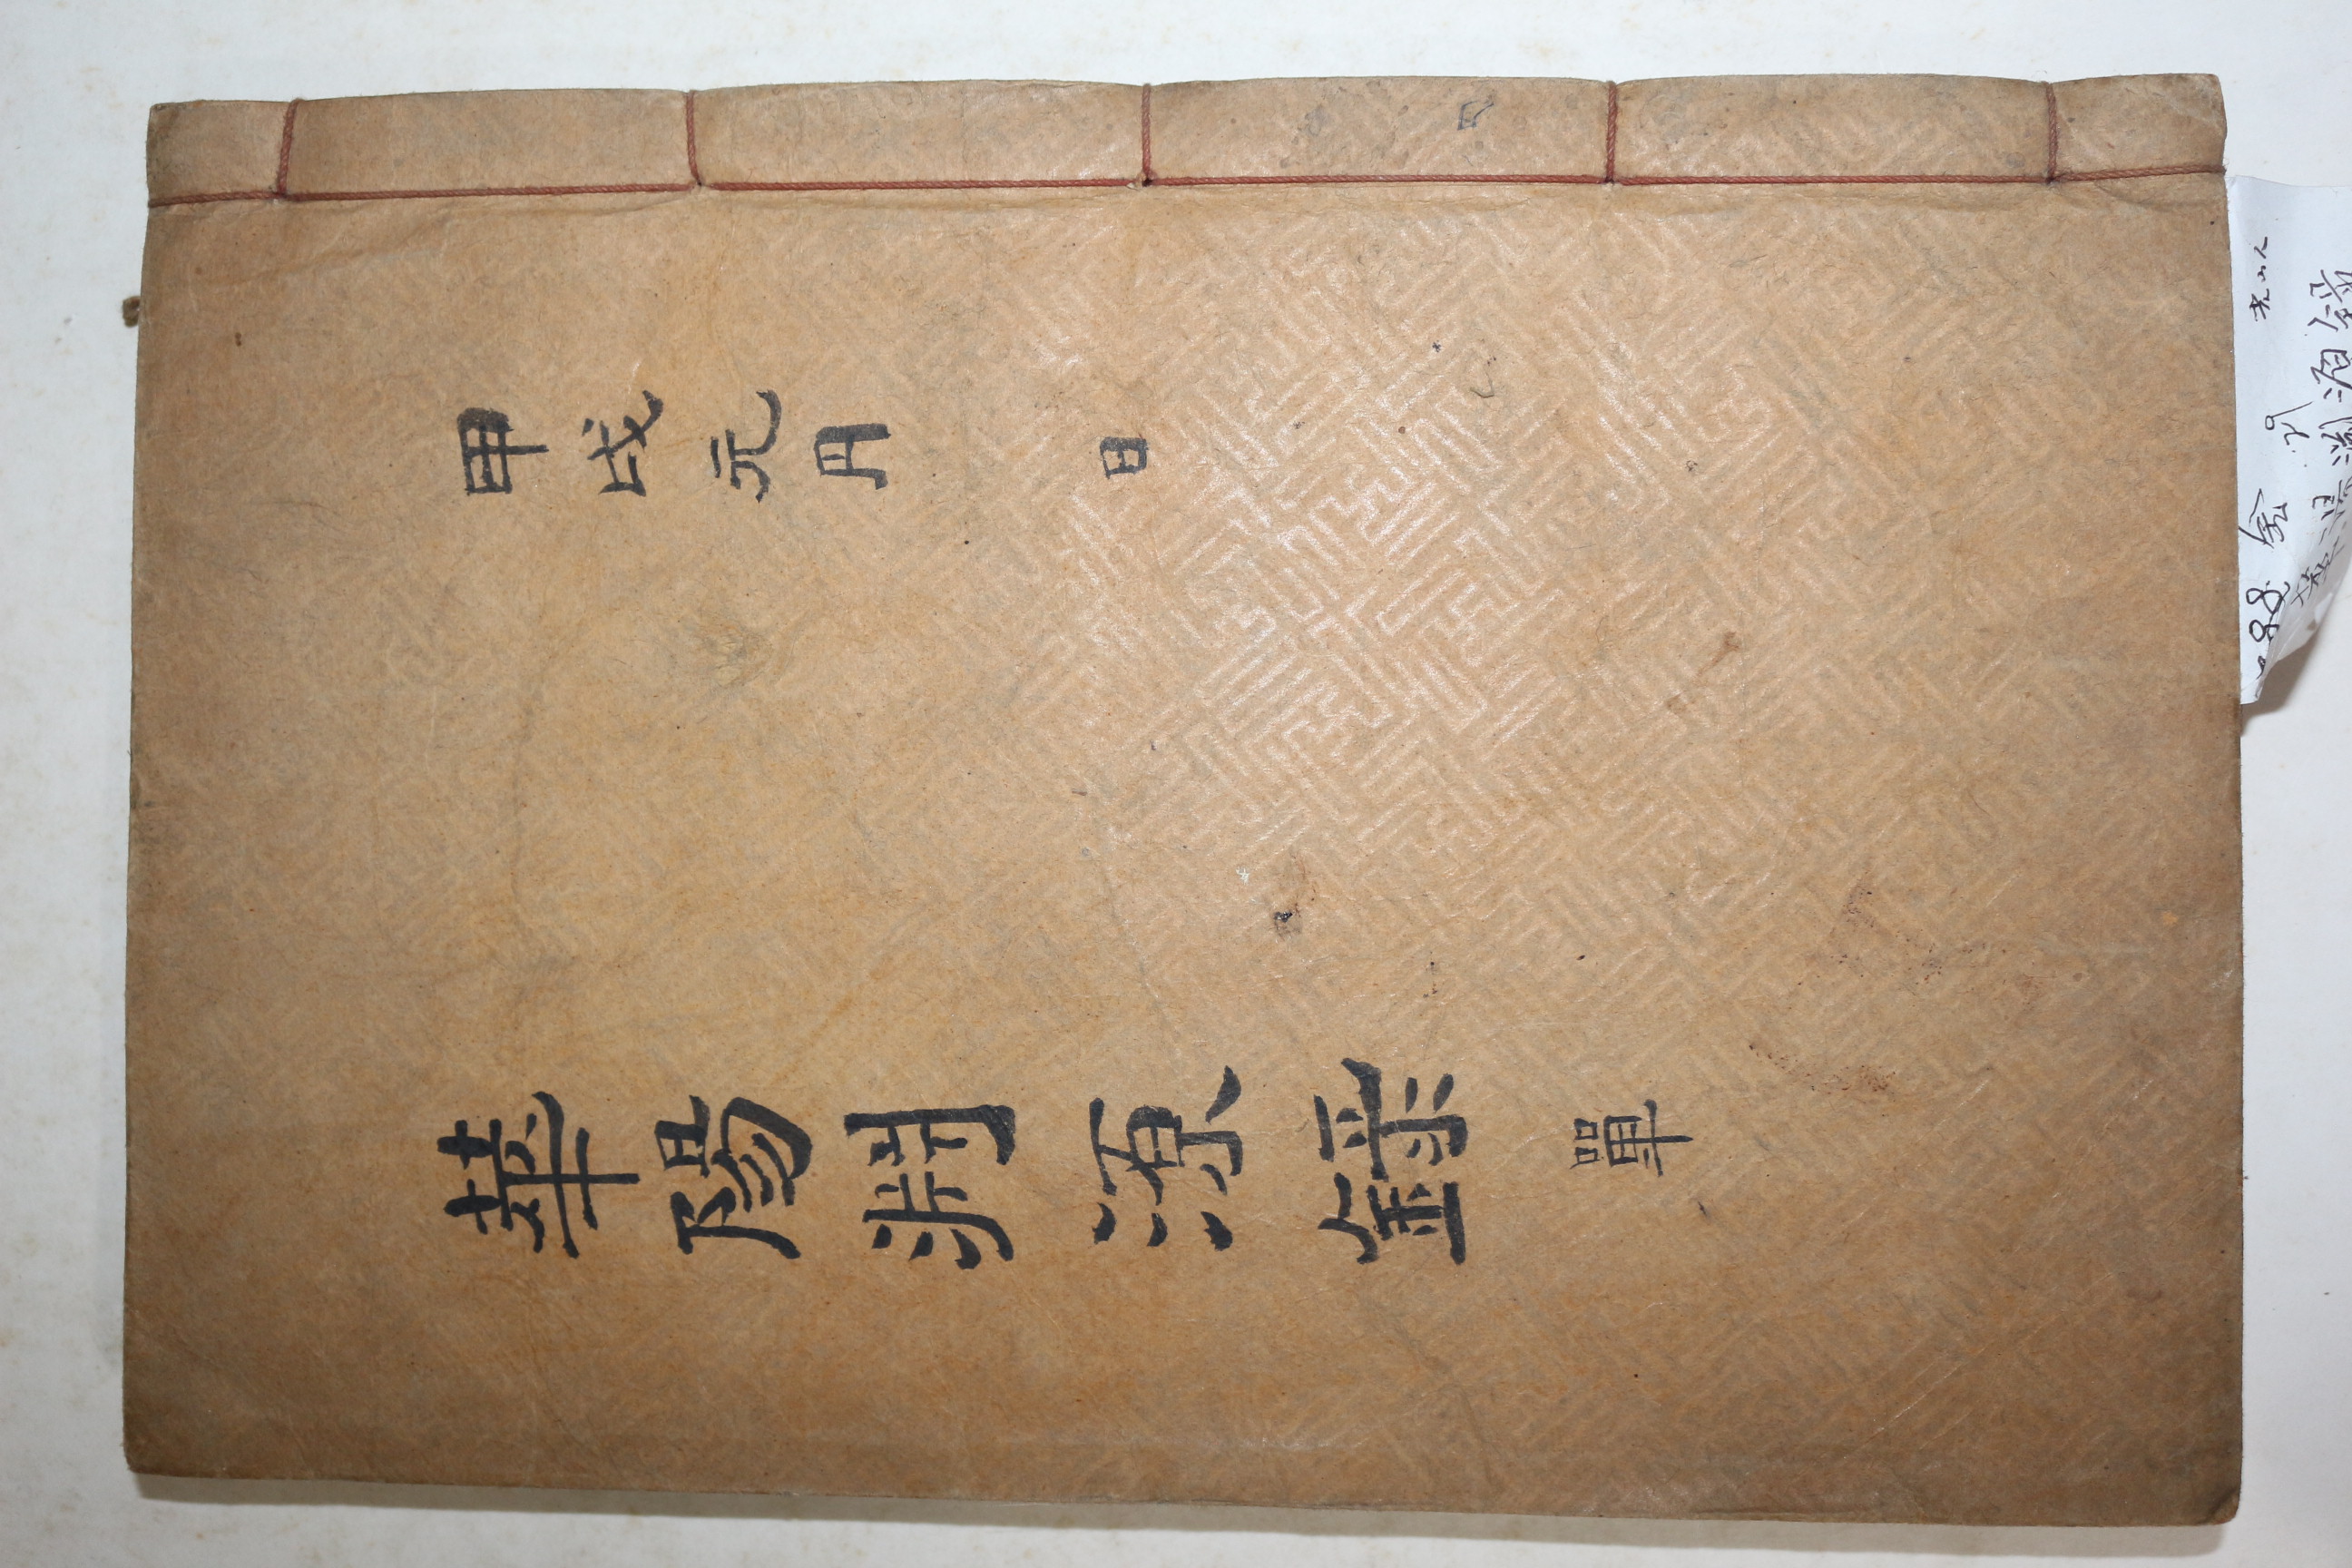 甲戌元月 日
華陽淵源錄 單
金 29 光山人
陽淵源錄